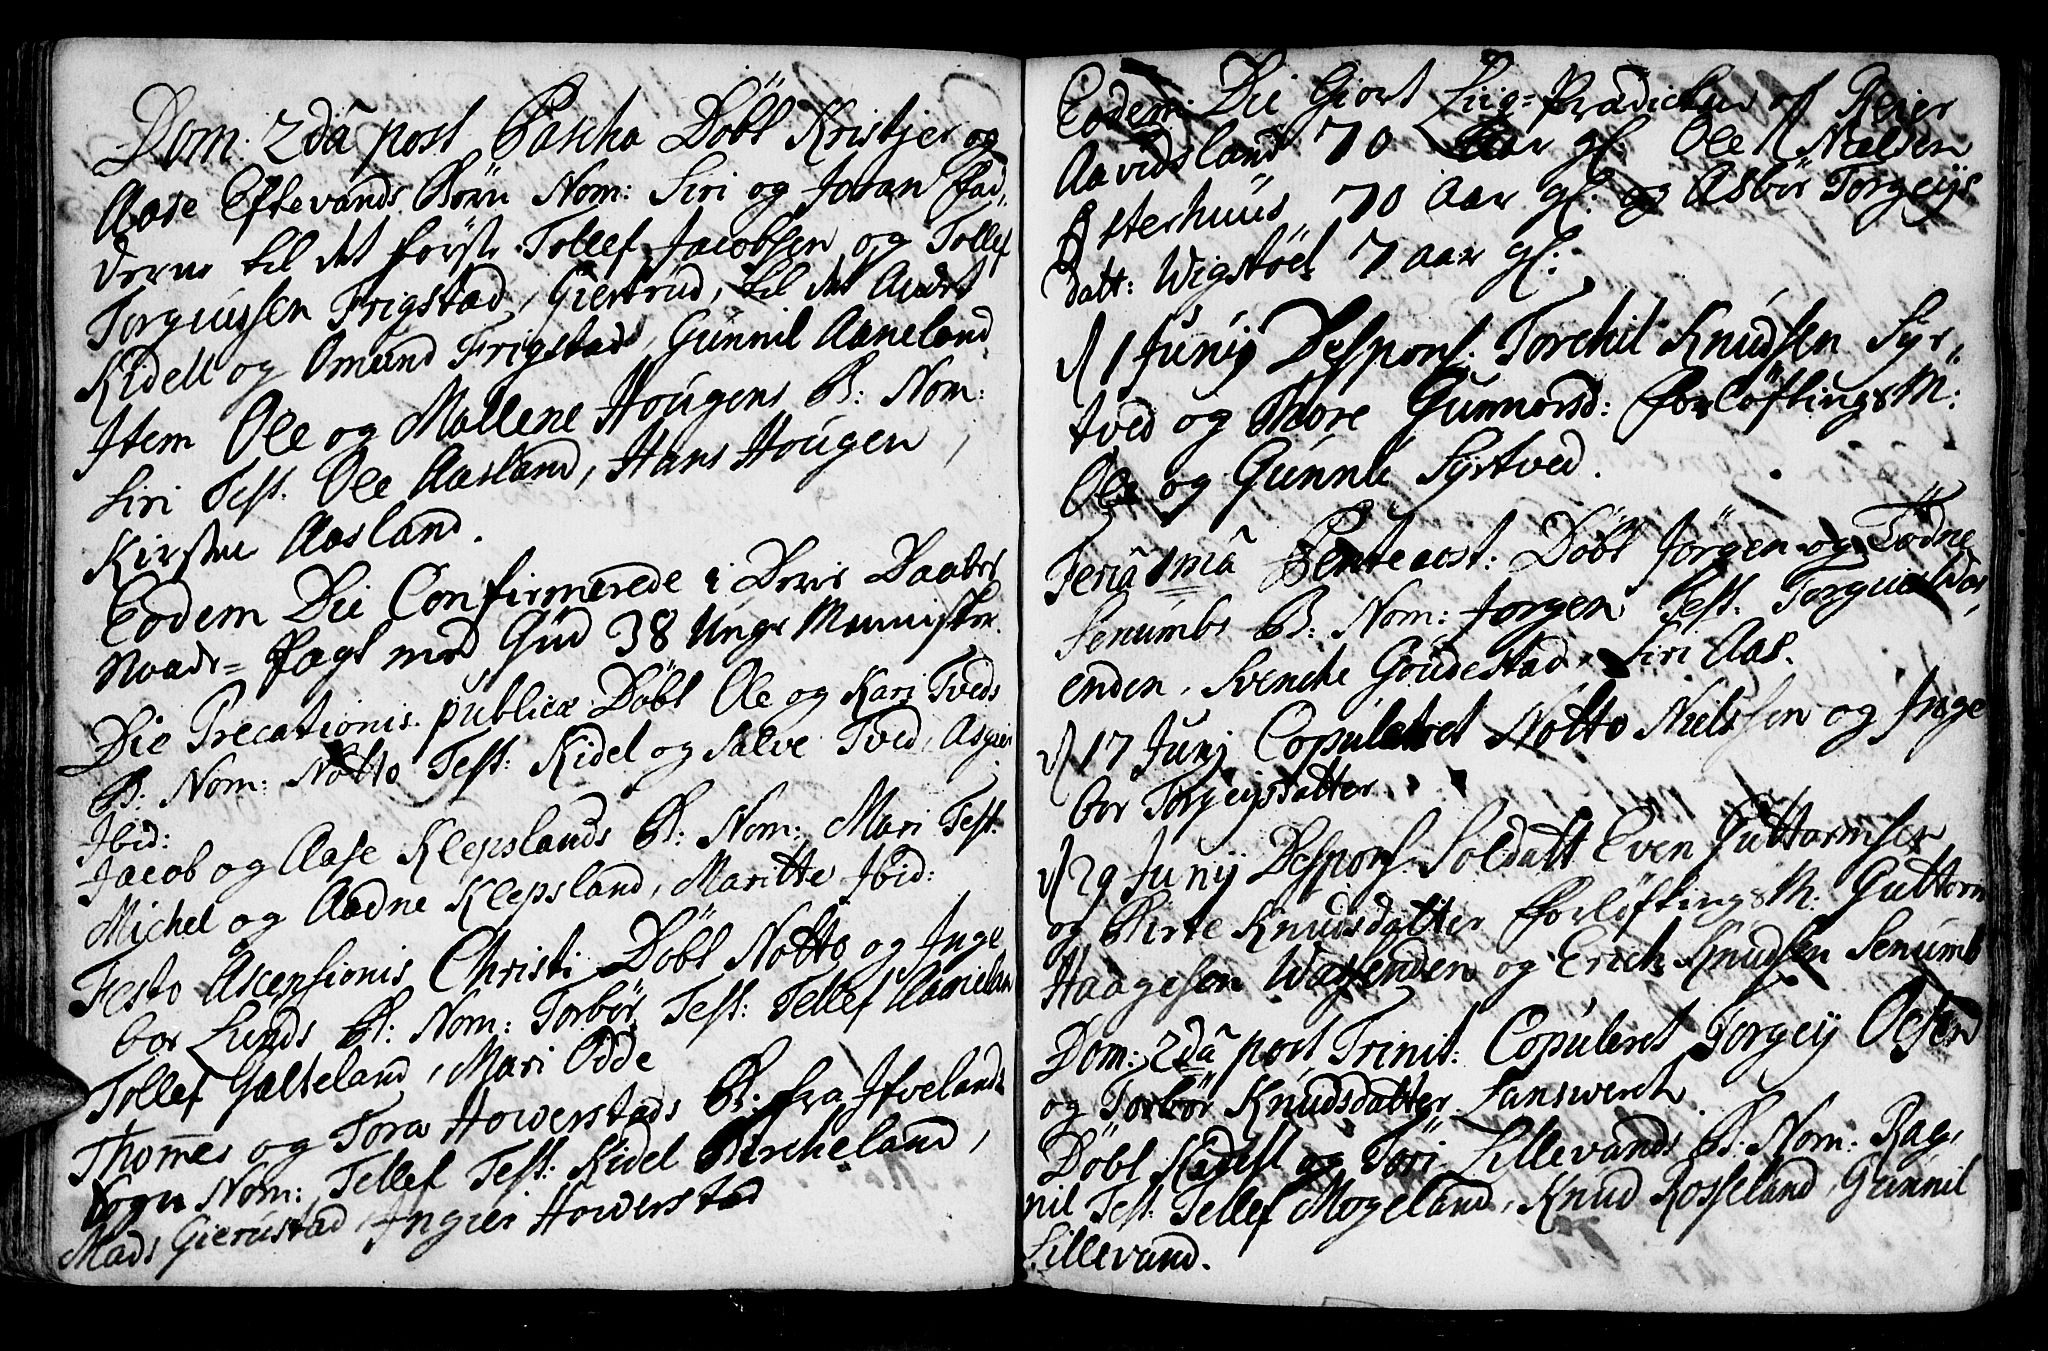 Dom: 2dâ post Pascha Döbt Kristjer og
Aase Eftevands Börn Nom: Siri og Joran Fad„
derne til det förste Tollef Jacobsen og Tollef
Torgiussen Frigstad, Giertrud, til det Andet
Kidell og Omund Frigstad, Gunnil Aaneland
Item Ole og Mallene Hougens B: Nom:
Siri Test. Ole Aasland, Hans Hougen,
Kirsten Aasland.
Eodem Die Confirmerede i Deris Daabes
Naade= Pagt med Gud 38 Unge Mennisker.
Die Precationis publicæ Döbt Ole og Kari Tveds
B: Nom: Notto Test: Kidel og Salve Tved, Asgier
Ibid:
Jacob og Aase Klepslands B: Nom: Mari Test:
Michel og Aadne Klepsland, Maritte Ibid:
Festo Ascensionis Christi Döbt Notto og Inge
bor Lunds B: Nom: Torbör Test: Tellef Aaneland
Tollef Galteland, Mari Odde
Thomes og Tora Howerstads B: fra Ifvelands
Sogn Nom: Tellef Test: Kidel Bircheland,
Mads Gierustad, Ingier Howerstad
Eodem Die Giort Liig=Prædicken of Reier
Aavidsland 70 Aar gl: Ole Nielsen
Österhuus 70 Aar gl: og Asbör Torgeys
datt: Wigstöel 7 aar gl:
d 1 Junij Despons. Torchil Knudsen Syr„
tved og Thore Gunnorsd: Forlöftings M:
Ole og Gunnle Syrtved.
Feriâ 1mâ Pentecost: Döbt Jörgen og Tödne
Senumbs B: Nom: Jorgen Test. Torgius Vas„
enden, Svenche Goudestad, Siri Aas.
d 17 Junj Copuleret Notto Nielssen og Inge
bor Torgeysdatter
d 29 Junij Despons. Soldatt Even Guttormsen
og Birte Knudsdatter Forlöftings M: Guttorm
Haagesen Wassenden og Erich Knudsen Senumb
Dom: 2dâ post Trinit: Copuleret Torgey Olsen
og Torbör Knudsdatter Lanswerch
Döbt Kidell og Tori Lillevands B: Nom: Rag„
nil Test: Tellef Mogeland, Knud Rosseland, Gunnil
Lillevand.